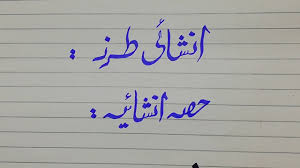 انشائی طرز :
حصہ انشائیہ :